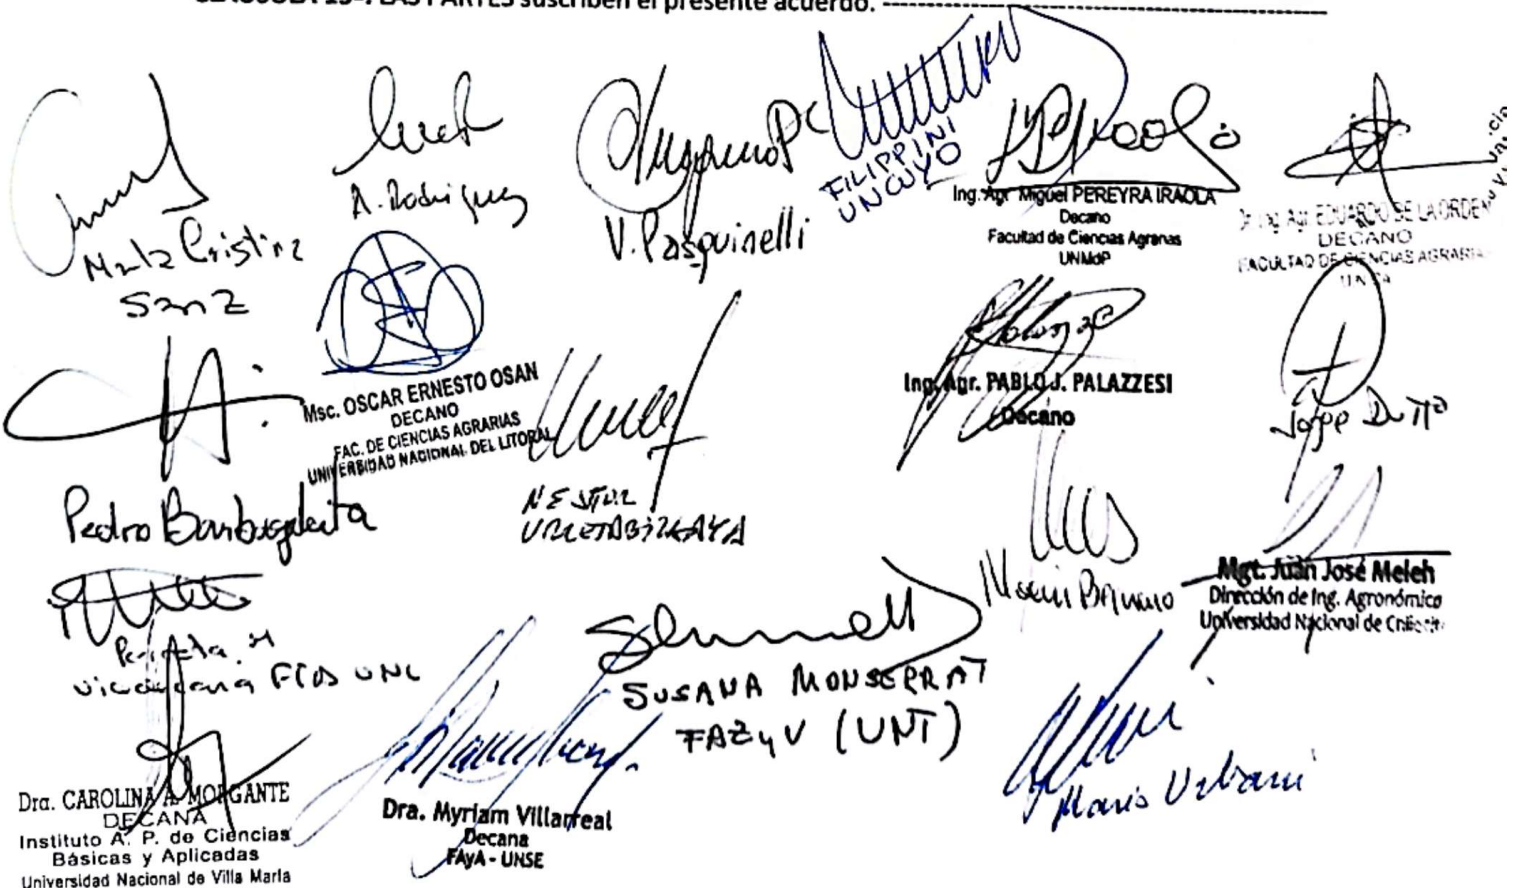 LAS PARTES suscriben el presente acuerdo. ---
Marta Cristina
Sanz
A. Rodriguez
V. Pasquinelli
FILIPPINI
UNCUYO
Ing. Agr. Miguel PEREYRA IRAOLA
Decano
Facultad de Ciencias Agrarias
UNMdP
Dr. Ing. Agr. EDUARDO DE LA ORDEN
DECANO
FACULTAD DE CIENCIAS AGRARIAS
Msc. OSCAR ERNESTO OSAN
DECANO
FAC. DE CIENCIAS AGRARIAS
UNIVERSIDAD NACIONAL DEL LITORAL
Ing. Agr. PABLO J. PALAZZESI
Decano
Jorge Dutto
Pedro Barbagelata
NESTOR
URRETABIZKAYA
Mgt. Juan José Meleh
Dirección de Ing. Agronómica
Universidad Nacional de
FCA UNL
SUSANA MONSERRAT
FAZyV (UNT)
Dra. CAROLINA A. MORGANTE
DECANA
Instituto A. P. de Ciencias
Básicas y Aplicadas
Universidad Nacional de Villa María
Dra. Myriam Villarreal
Decana
FAyA - UNSE
Urbani